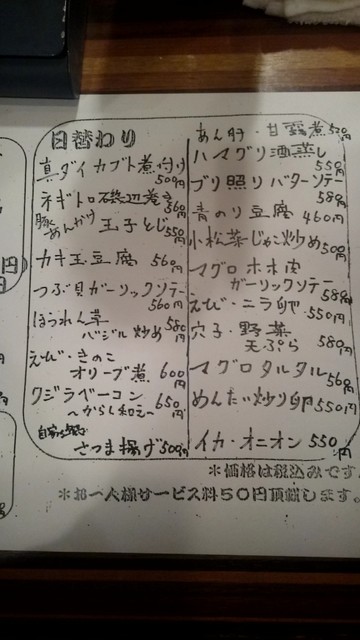 日替わり
真ダイカブト煮付け
500円
ネギトロ磯辺巻き
560円
豚あんかけ 玉子とじ550円
カキ玉豆腐 560円
つぶ貝ガーリックソテー
560円
ほうれん草
バジル炒め 580円
えび・きのこ
オリーブ煮 600円
クジラベーコン 650円
〜からし和え〜
自家製
さつま揚げ 500円
あん肝・甘露煮 520円
ハマグリ酒蒸し
550円
ブリ照りバターソテー
580円
青のり豆腐 460円
小松菜じゃこ炒め500円
マグロホホ肉
ガーリックソテー
580円
えび・ニラ卵 550円
穴子・野菜
天ぷら 580円
マグロタルタル
560円
めんたい炒り卵550円
イカ・オニオン 550円
*価格は税込みです
*お一人様サービス料50円頂戴します。